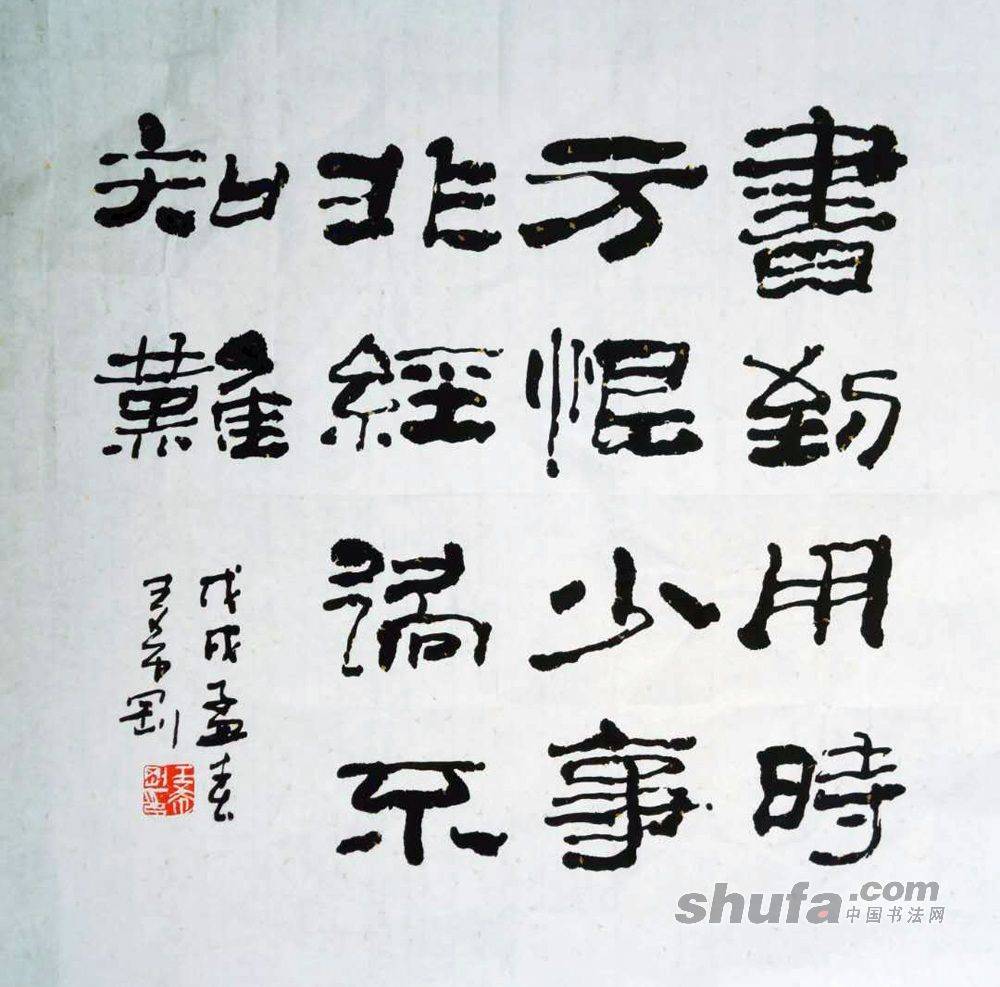 書到用時
方恨少事
非經過不
知難
戊戌孟春
王希剛
shufa.com
中国书法网